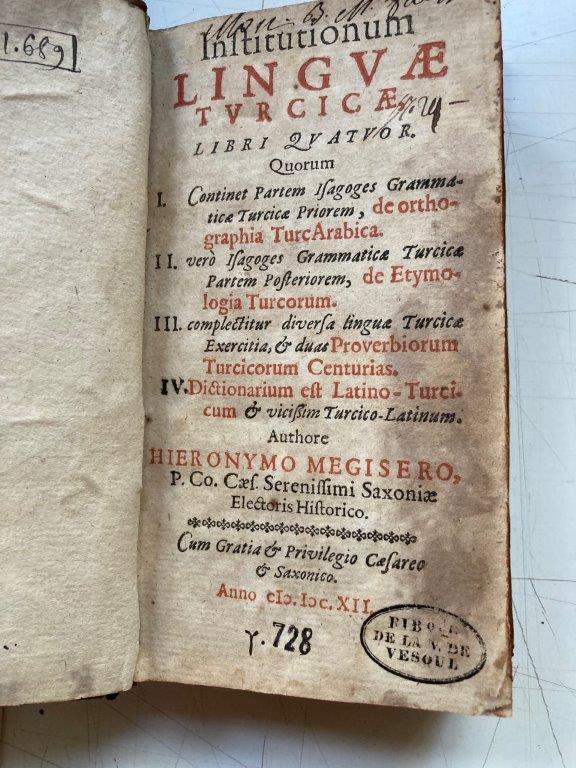 1.689
Institutionum
LINGVÆ
TVRCICÆ,
LIBRI QVATVOR.
Quorum
I. Continet Partem Iſagoges Gramma-
ticæ Turcicæ Priorem, de ortho-
graphia TurcArabica.
II. verò Iſagoges Grammaticæ Turcicæ
Partem Poſteriorem, de Etymo-
logia Turcorum.
III. complectitur diverſa linguæ Turcicæ
Exercitia, & duas Proverbiorum
Turcicorum Centurias.
IV. Dictionarium eſt Latino-Turci-
cum & viciſſim Turcico-Latinum.
Authore
HIERONYMO MEGISERO,
P. Co. Cæſ. Sereniſſimi Saxoniæ
Electoris Hiſtorico.
Cum Gratia & Privilegio Cæſareo
& Saxonico.
Anno cIɔ.Iɔc.XII.
γ.728
DE LA V. DE
VESOUL